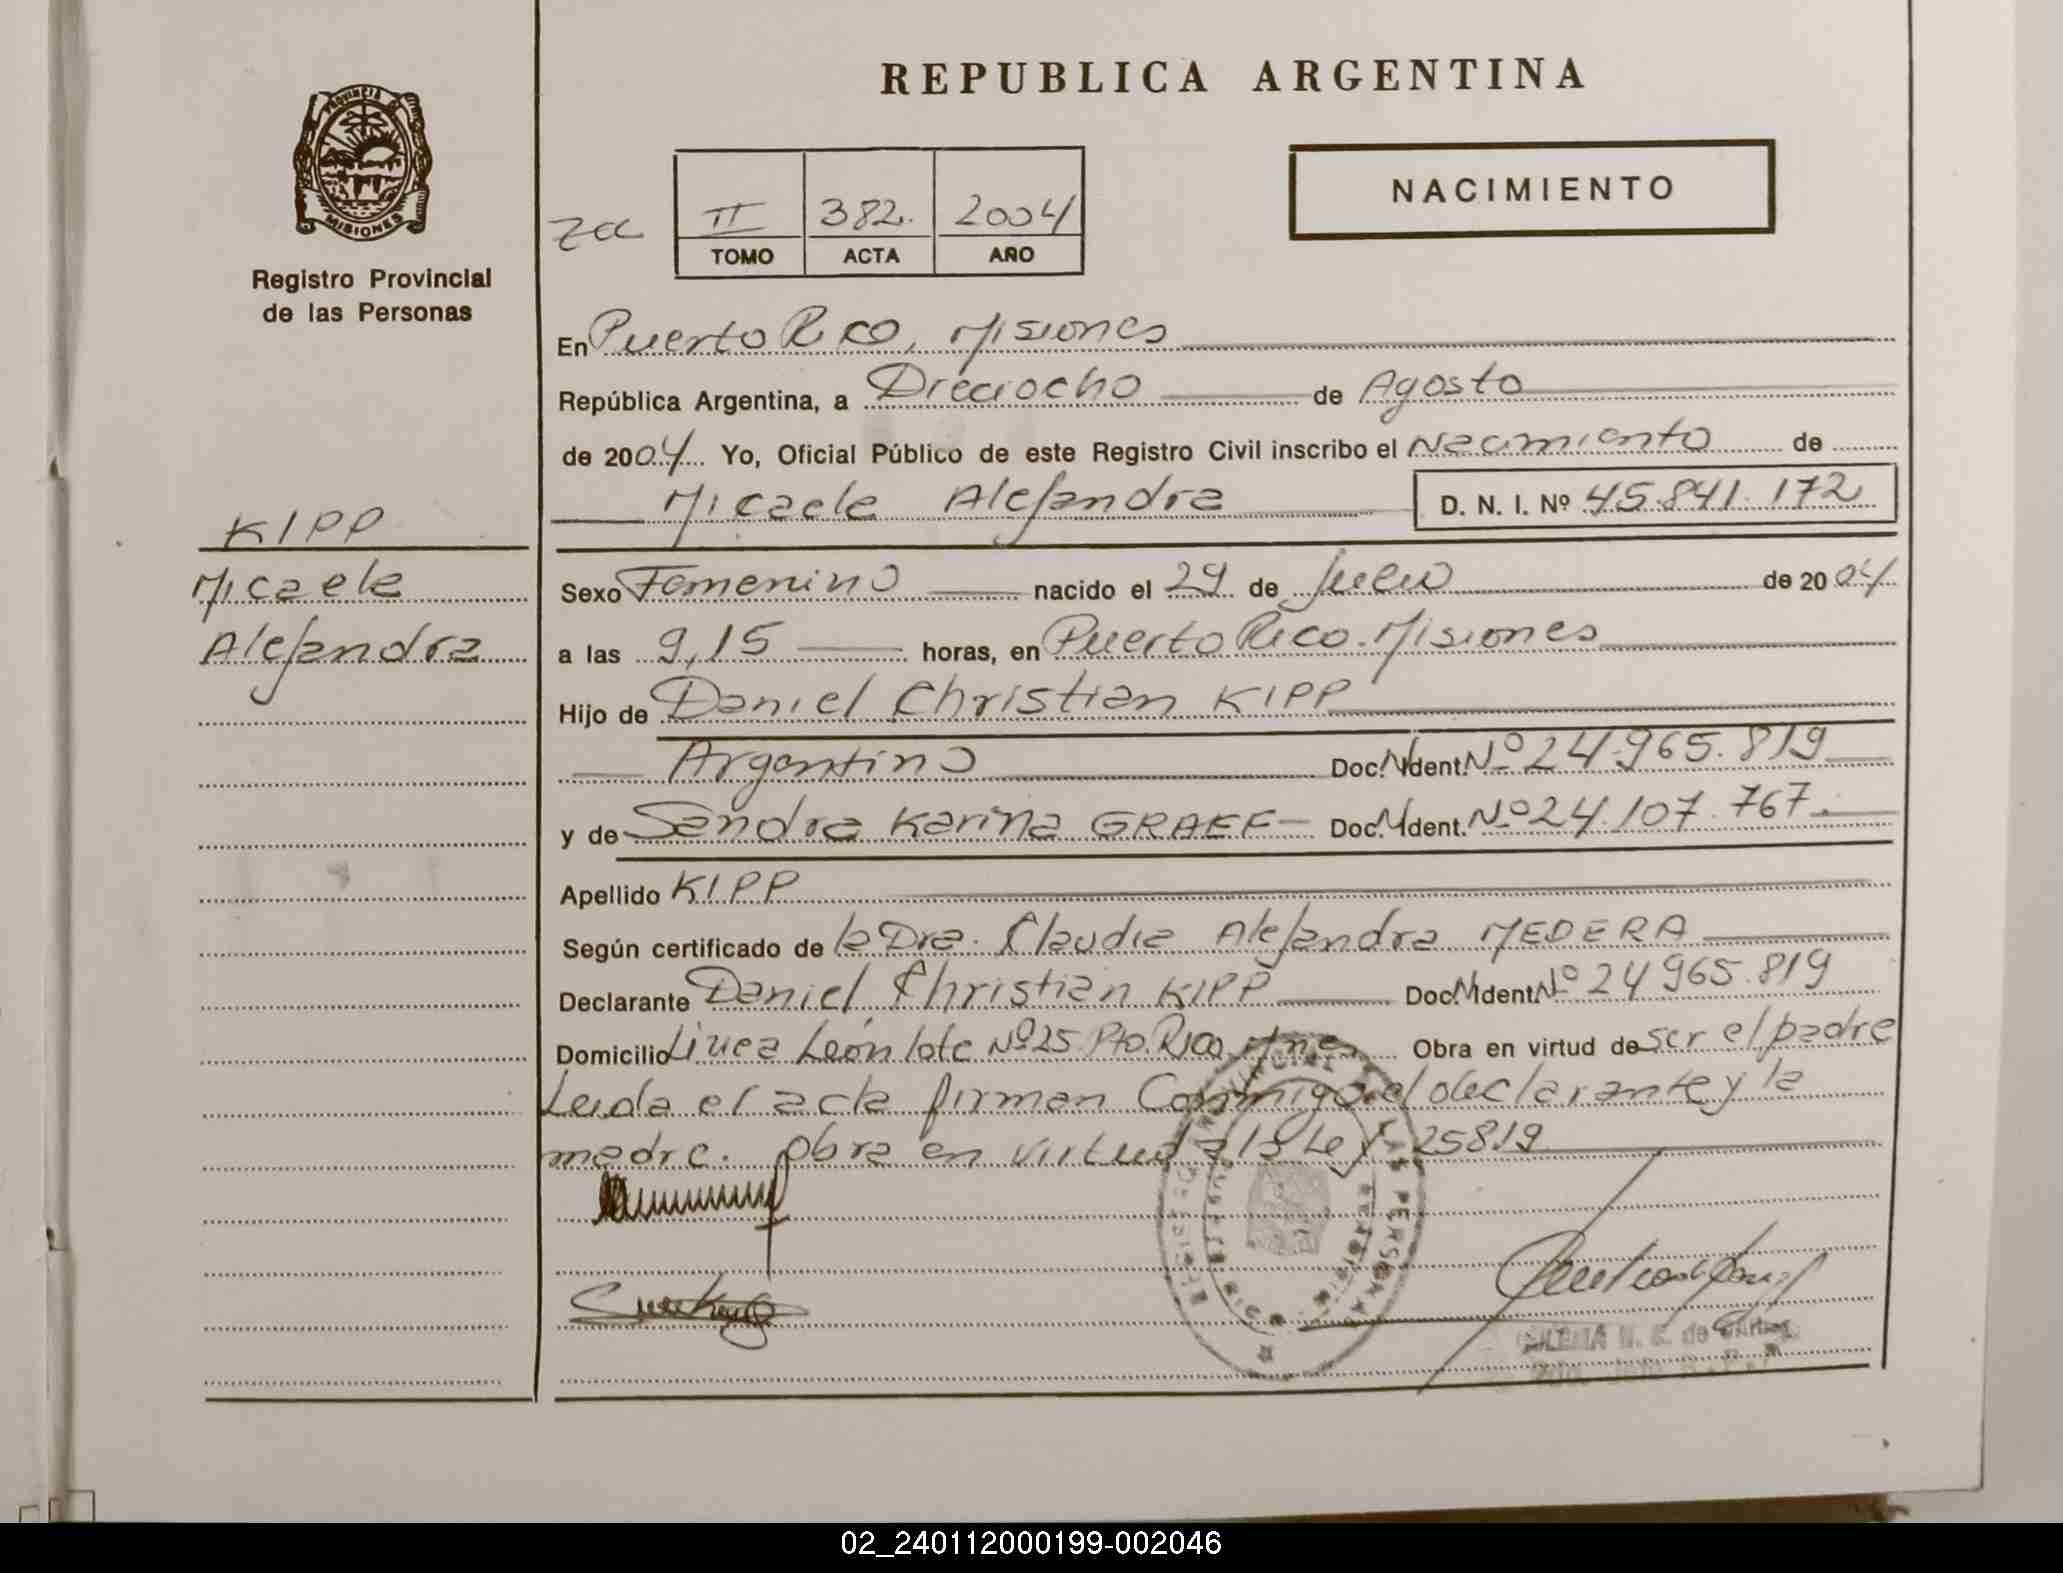 REPUBLICA ARGENTINA
PROVINCIA DE
MISIONES
Registro Provincial
de las Personas
NACIMIENTO
II 382. 2004
TOMO ACTA AÑO
En Puerto Rico, Misiones
República Argentina, a Dieciocho de Agosto
de 2004 Yo, Oficial Público de este Registro Civil inscribo el Nacimiento de
Micaela Alejandra D. N. I. Nº 45.841.172
KIPP
Micaela
Alejandra
Sexo Femenino nacido el 29 de Julio de 2004
a las 9,15 horas, en Puerto Rico. Misiones
Hijo de Daniel Christian KIPP
Argentino Doc. Ident. Nº 24.965.819
y de Sandra Karina GRAEF Doc. Ident. Nº 24.107.767.
Apellido KIPP
Según certificado de la Dra. Claudia Alejandra MEDERA
Declarante Daniel Christian KIPP Doc. Ident. Nº 24965.819
Domicilio Linea León lote Nº 25 Pto. Rico Mnes Obra en virtud de ser el padre
Leida el acta firman Conmigo el declarante y la
madre. Obra en virtud a la Ley 25819
02_240112000199-002046